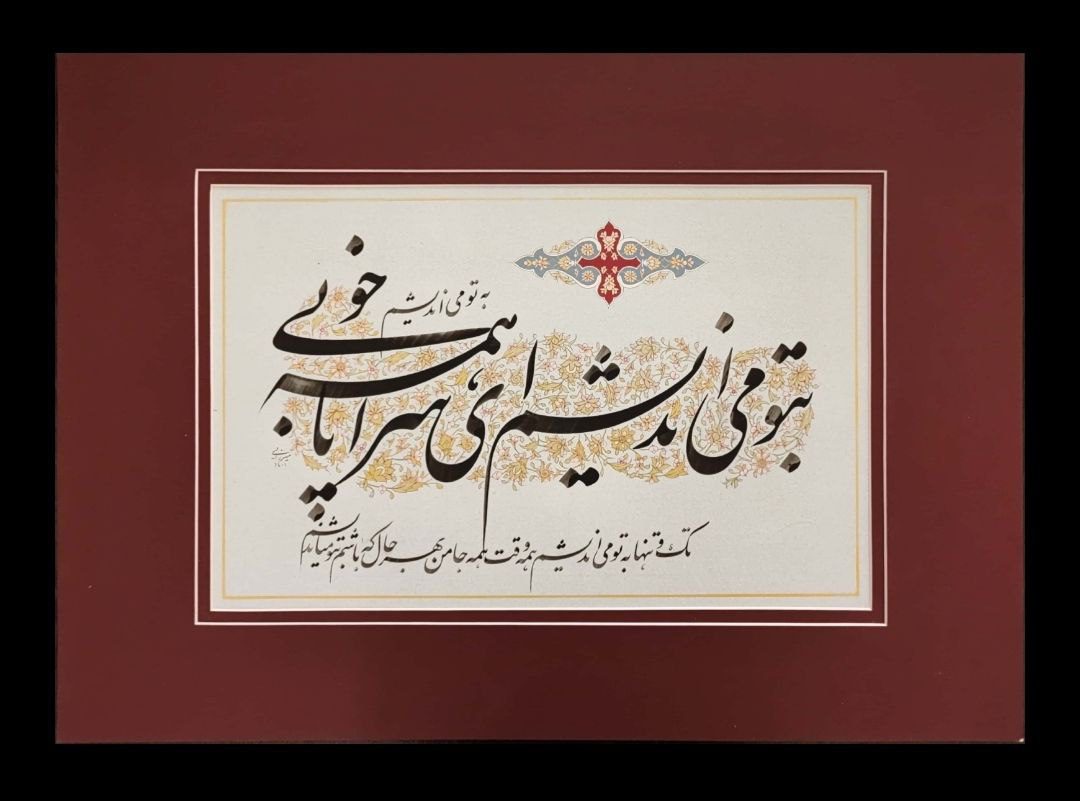 به تو می اندیشم
بتو می اندیشم ای سراپا همه خوبی
تک و تنها به تو می اندیشم همه وقت همه جا من بهر حال که باشم بتو میاندیشم